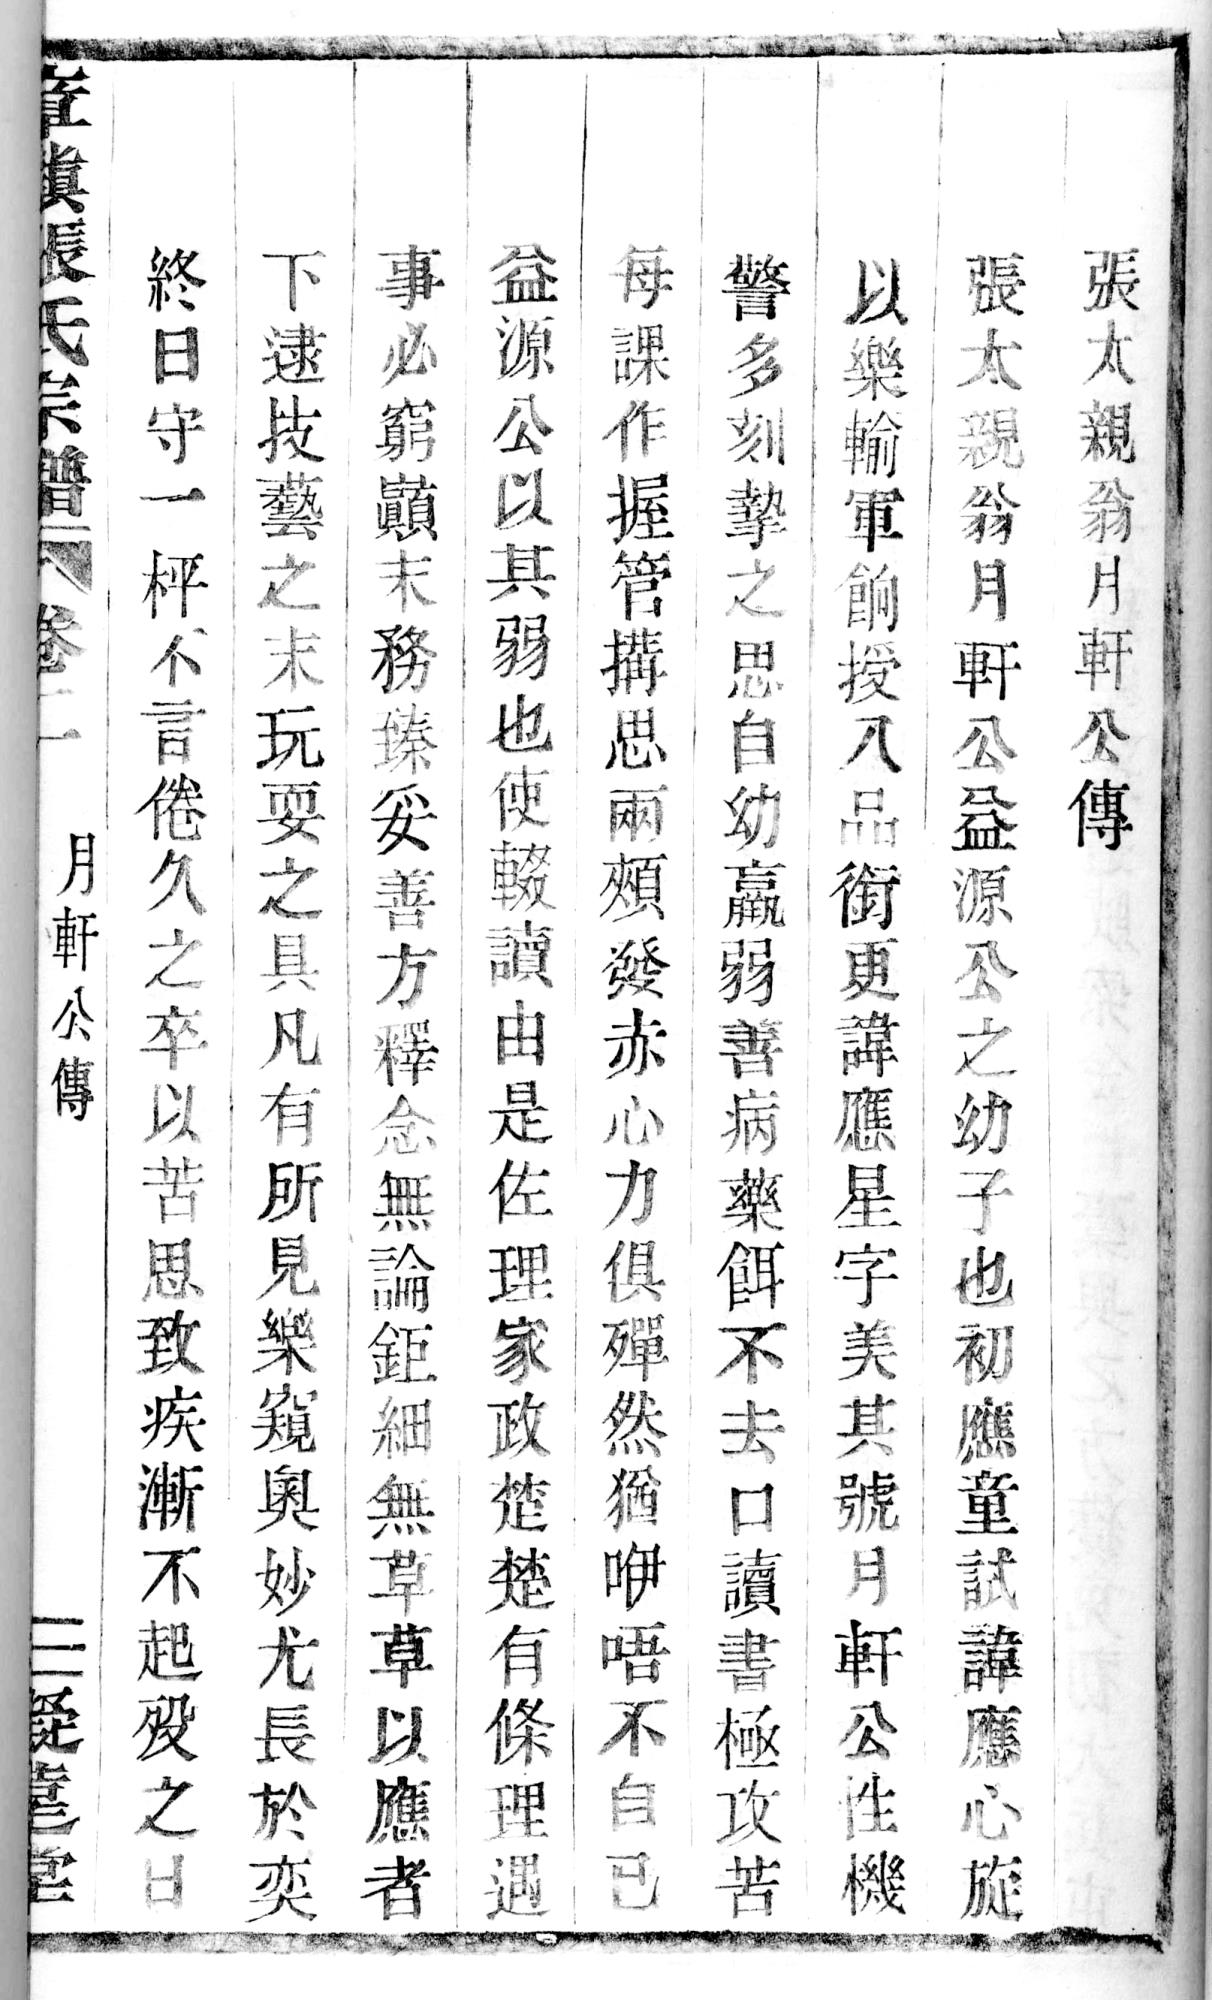 張太親翁月軒公傳
張太親翁月軒公益源公之幼子也初應童試諱應心旋
以樂輸軍餉授八品銜更諱應星字美其號月軒公性機
警多刻摯之思自幼羸弱善病藥餌不去口讀書極攻苦
每課作握管搆思兩頰發赤心力俱殫然猶咿唔不自已
益源公以其弱也使輟讀由是佐理家政楚楚有條理遇
事必窮巔末務臻妥善方釋念無論鉅細無草草以應者
下逮技藝之末玩耍之具凡有所見樂窺奧妙尤長於奕
終日守一枰不言倦久之卒以苦思致疾漸不起歿之日
張氏宗譜 卷二 月軒公傳 三 堂